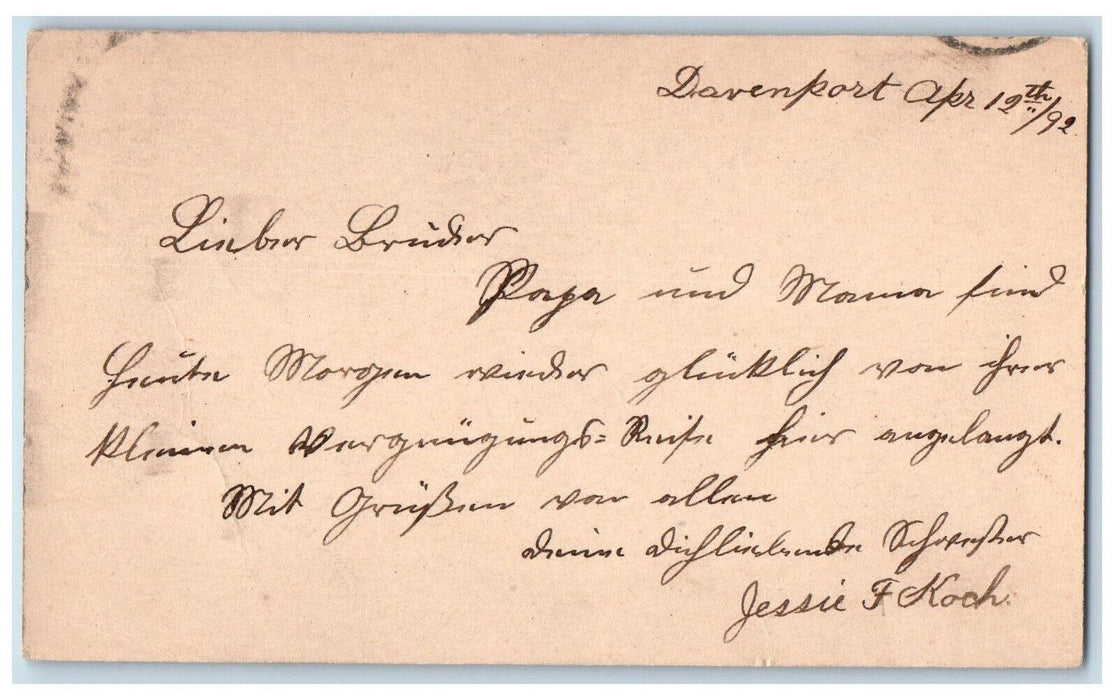 Davenport Apr 12th/92
Lieber Bruder
Papa und Mama sind
heute Morgen wieder glücklich von ihrer
kleinen Vergnügungs=Reise hier angelangt.
Mit Grüßen von allen
deine dichliebende Schwester
Jessie F Koch